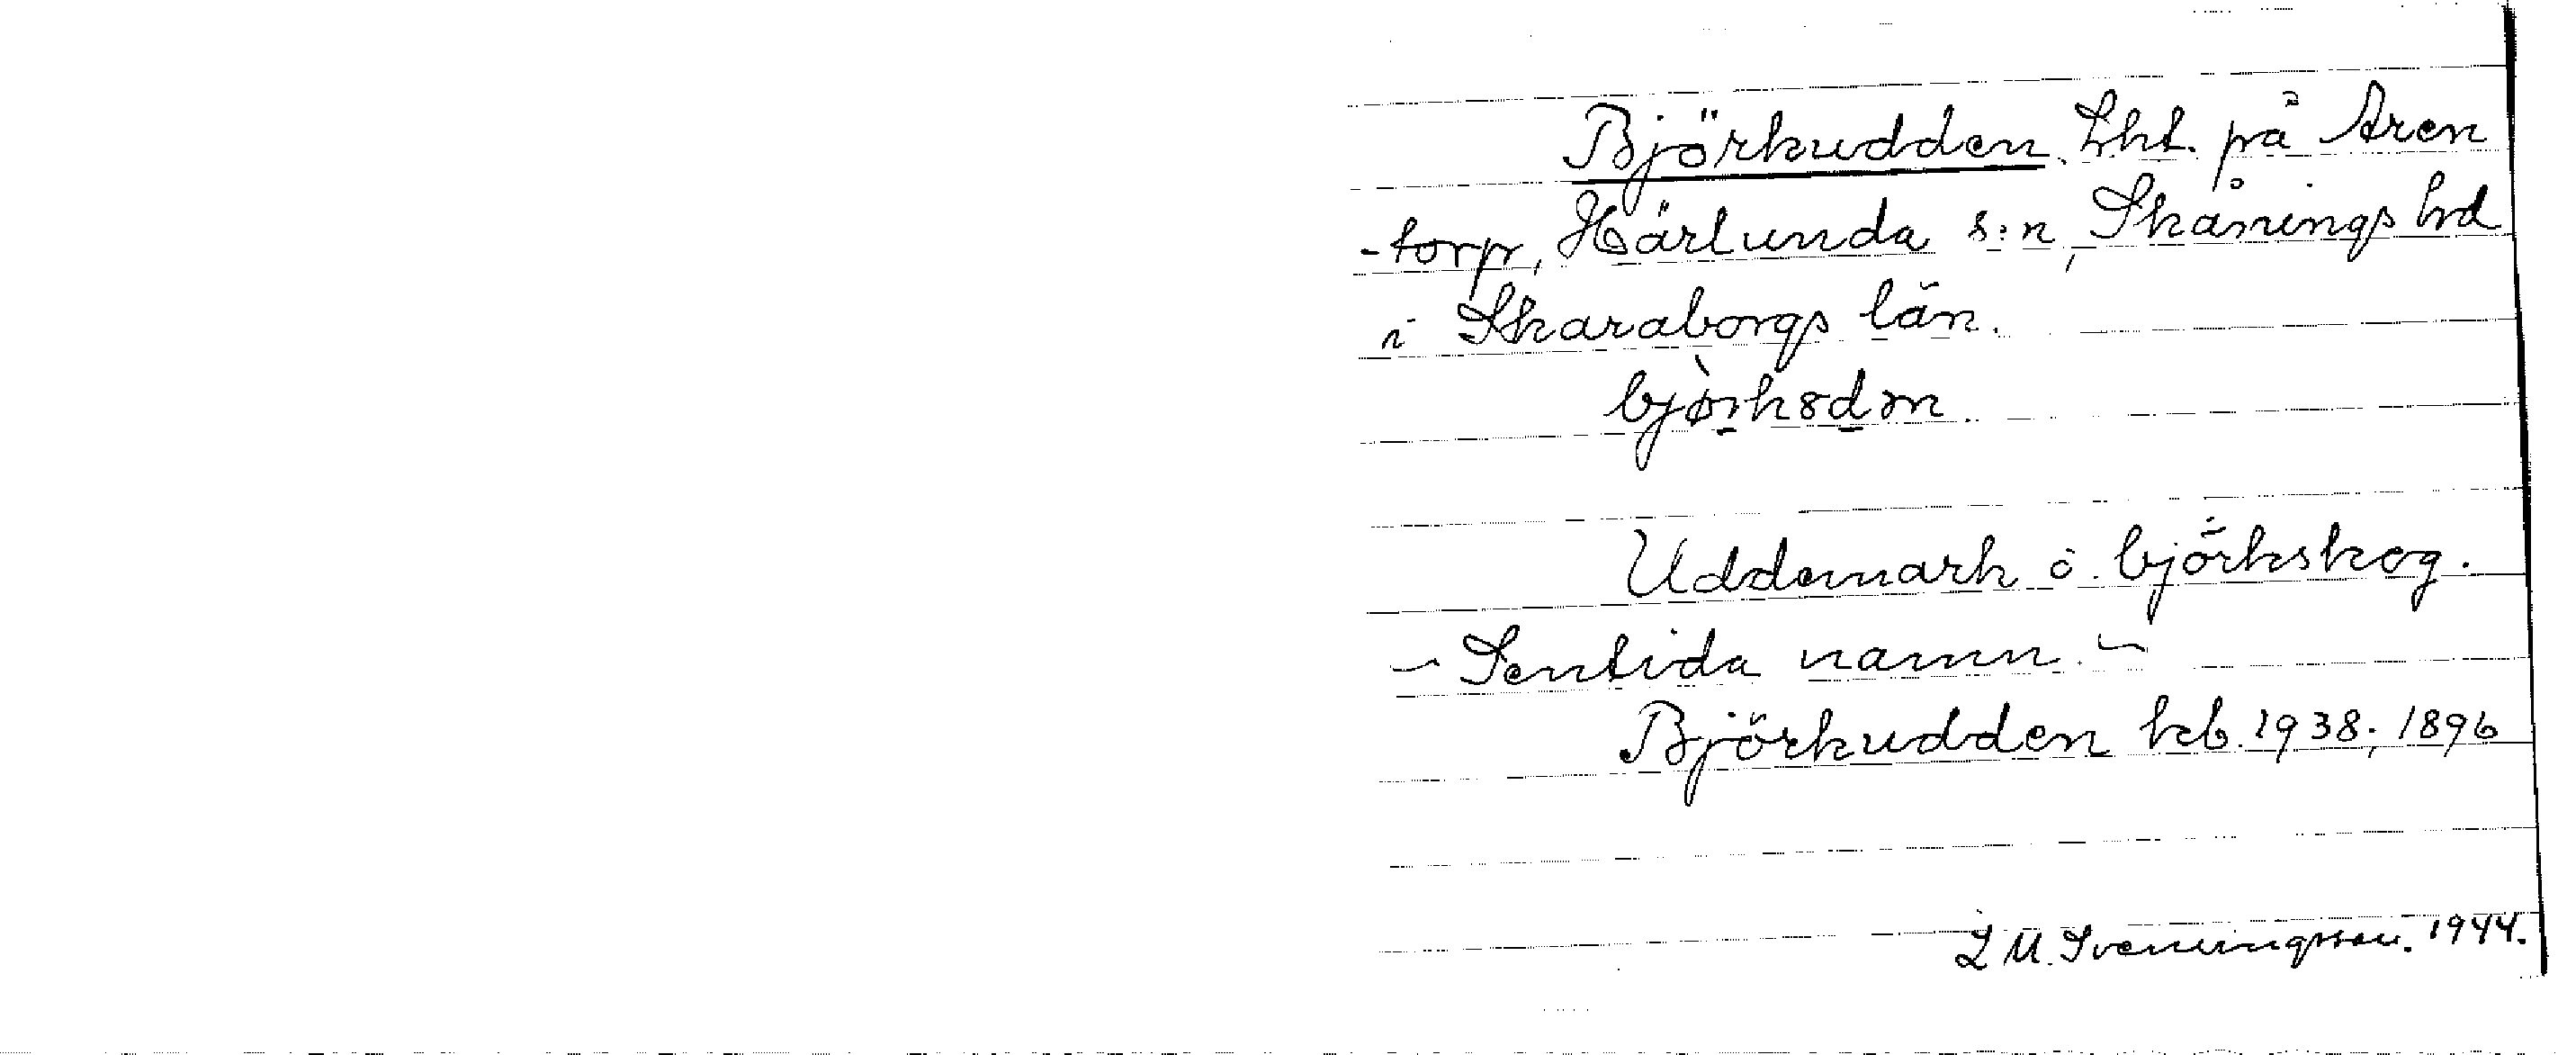 Björkudden. Lht. på Aren
-torp, Härlunda s:n, Skånings hd
i Skaraborgs län.
Uddemark o. björkskog.
- Sentida namn. -
Björkudden kb. 1938; 1896
L M. Svenungsson. 1944.